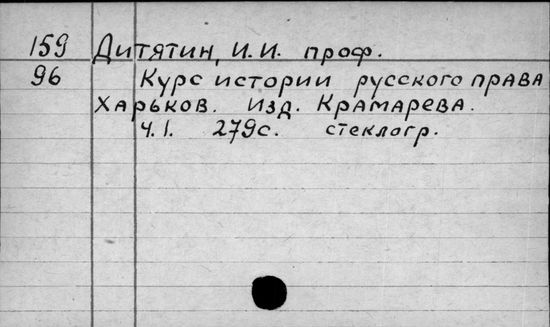 159 Дитятин, И.И. проф.
96 Курс истории русского права
Харьков. Изд. Крамарева.
Ч.1. 279с. стеклогр.